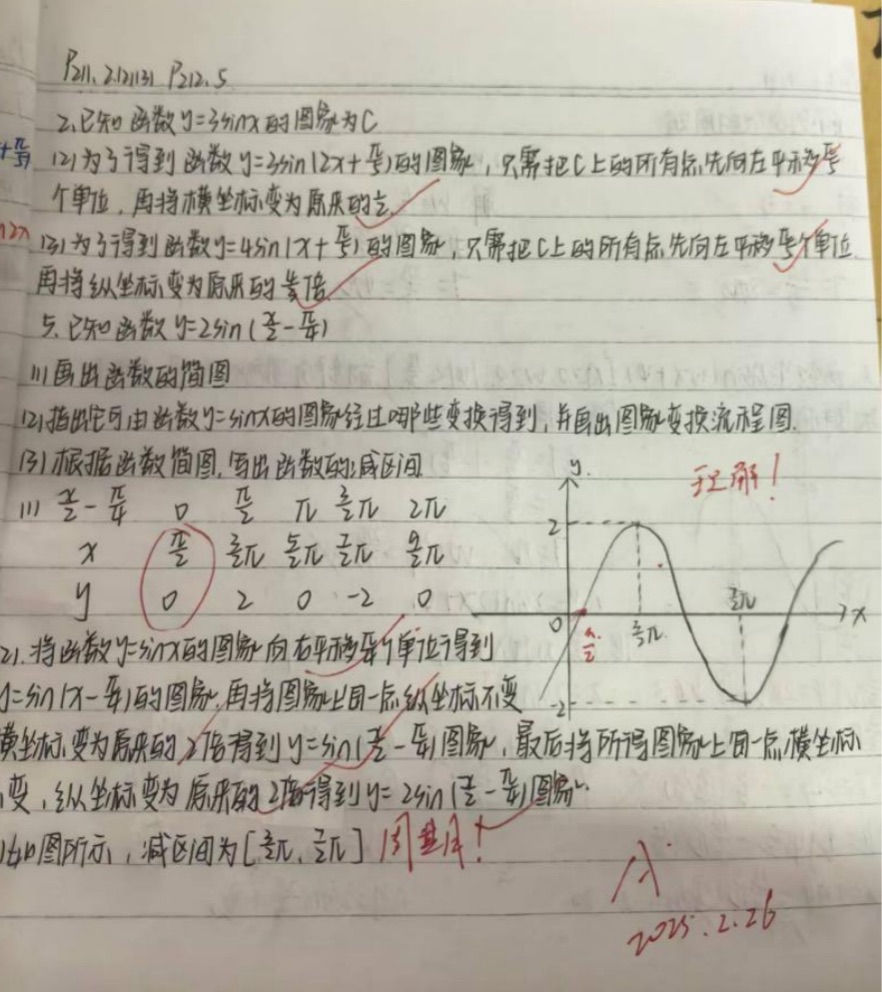 P211. 2.(2)(3) P212. 5
2.已知函数y=3sinx的图象为C
(2)为了得到函数y=3sin(2x+π/5)的图象,只需把C上的所有点先向左平移π/5
个单位,再将横坐标变为原来的1/2
(3)为了得到函数y=4sin(x+π/5)的图象,只需把C上的所有点先向左平移π/5个单位
再将纵坐标变为原来的4/3倍
5.已知函数y=2sin(x/2-π/4)
(1)画出函数的简图
(2)指出它可由函数y=sinx的图象经过哪些变换得到,并画出图象变换流程图.
(3)根据函数简图,写出函数的减区间
理解!
(1) x/2-π/4 0 π/2 π 3/2π 2π
x π/2 3/2π 5/2π 7/2π 9/2π
y 0 2 0 -2 0
y
2
0 π/2 3/2π 7/2π x
-2
2).将函数y=sinx的图象向右平移π/4个单位得到
y=sin(x-π/4)的图象.再将图象上同一点纵坐标不变
横坐标变为原来的2倍得到y=sin(x/2-π/4)图象,最后将所得图象上同一点横坐标
变,纵坐标变为原来的2倍得到y=2sin(x/2-π/4)图象.
如图所示,减区间为[3/2π,7/2π] 周期!
A
2025.2.26